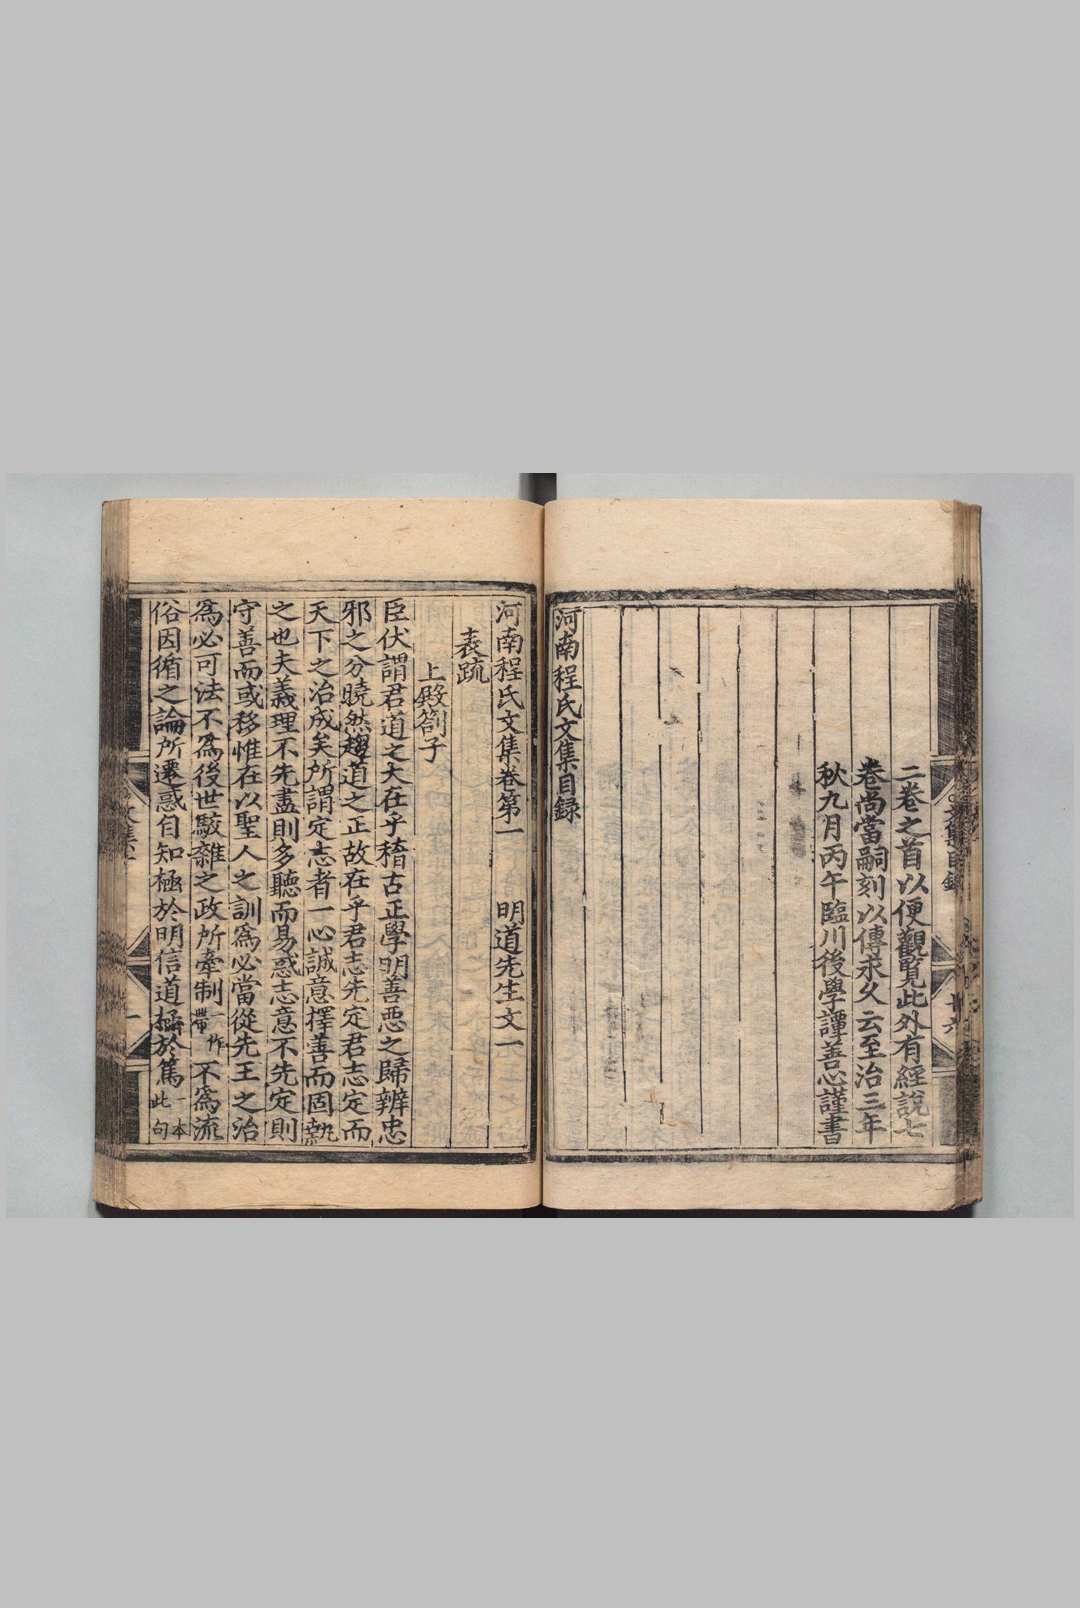 二卷之首以便觀覽此外有經說七
卷尚當嗣刻以傳求久云至治三年
秋九月丙午臨川後學譚善心謹書
河南程氏文集目録
河南程氏文集卷第一 明道先生文一
表疏
上殿劄子
臣伏謂君道之大在乎稽古正學明善惡之歸辨忠
邪之分曉然趨道之正故在乎君志先定君志定而
天下之治成矣所謂定志者一心誠意擇善而固執
之也夫義理不先盡則多聽而易惑志意不先定則
守善而或移惟在以聖人之訓爲必當從先王之治
爲必可法不爲後世駁雜之政所牽制一作帶不爲流
俗因循之論所遷惑自知極於明信道極於篤一本此句
文集目録 廿六